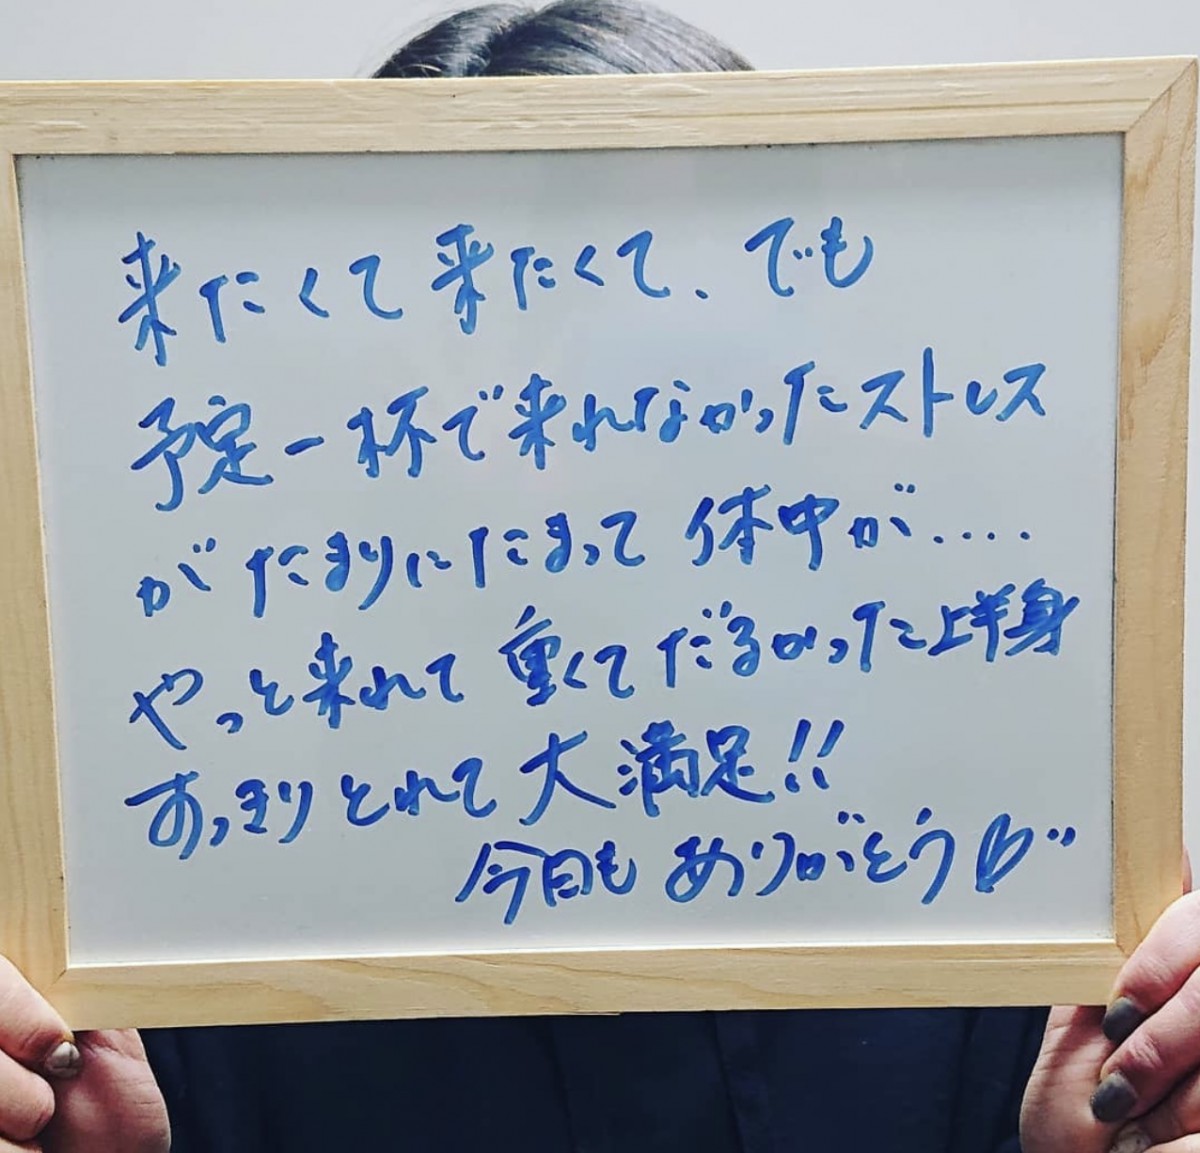 来たくて来たくて、でも
予定一杯で来れなかったストレス
がたまりにたまって 体中が....
やっと来れて重くてだるかった上半身
すっきりとれて大満足!!
今日もありがとう♡